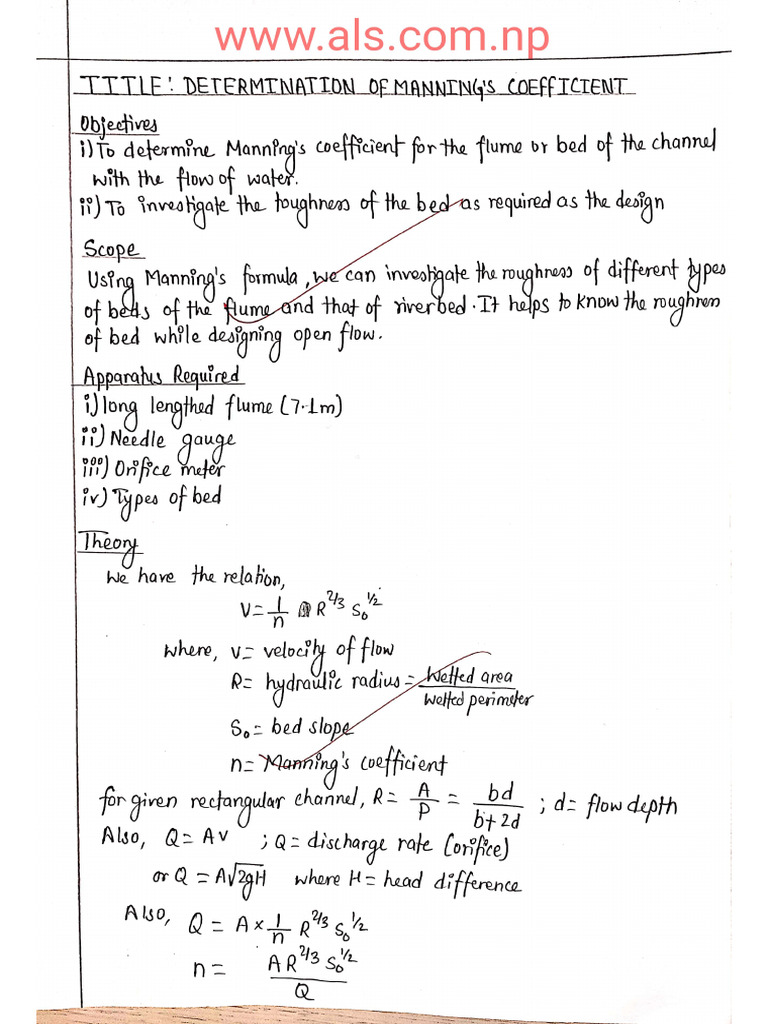 www.als.com.np
TITLE: DETERMINATION OF MANNING'S COEFFICIENT
Objectives
i) To determine Manning's coefficient for the flume or bed of the channel
with the flow of water.
ii) To investigate the toughness of the bed as required as the design
Scope
Using Manning's formula, we can investigate the roughness of different types
of beds of the flume and that of riverbed. It helps to know the roughness
of bed while designing open flow.
Apparatus Required
i) long lengthed flume (7.1m)
ii) Needle gauge
iii) Orifice meter
iv) Types of bed
Theory
We have the relation,
V = 1/n R^2/3 S₀^1/2
where, v = velocity of flow
R = hydraulic radius = Wetted area / wetted perimeter
S₀ = bed slope
n = Manning's coefficient
for given rectangular channel, R = A/P = bd/(b+2d) ; d = flow depth
Also, Q = Av ; Q = discharge rate (orifice)
or Q = A√2gH where H = head difference
Also, Q = A × 1/n R^2/3 S₀^1/2
n = A R^2/3 S₀^1/2 / Q